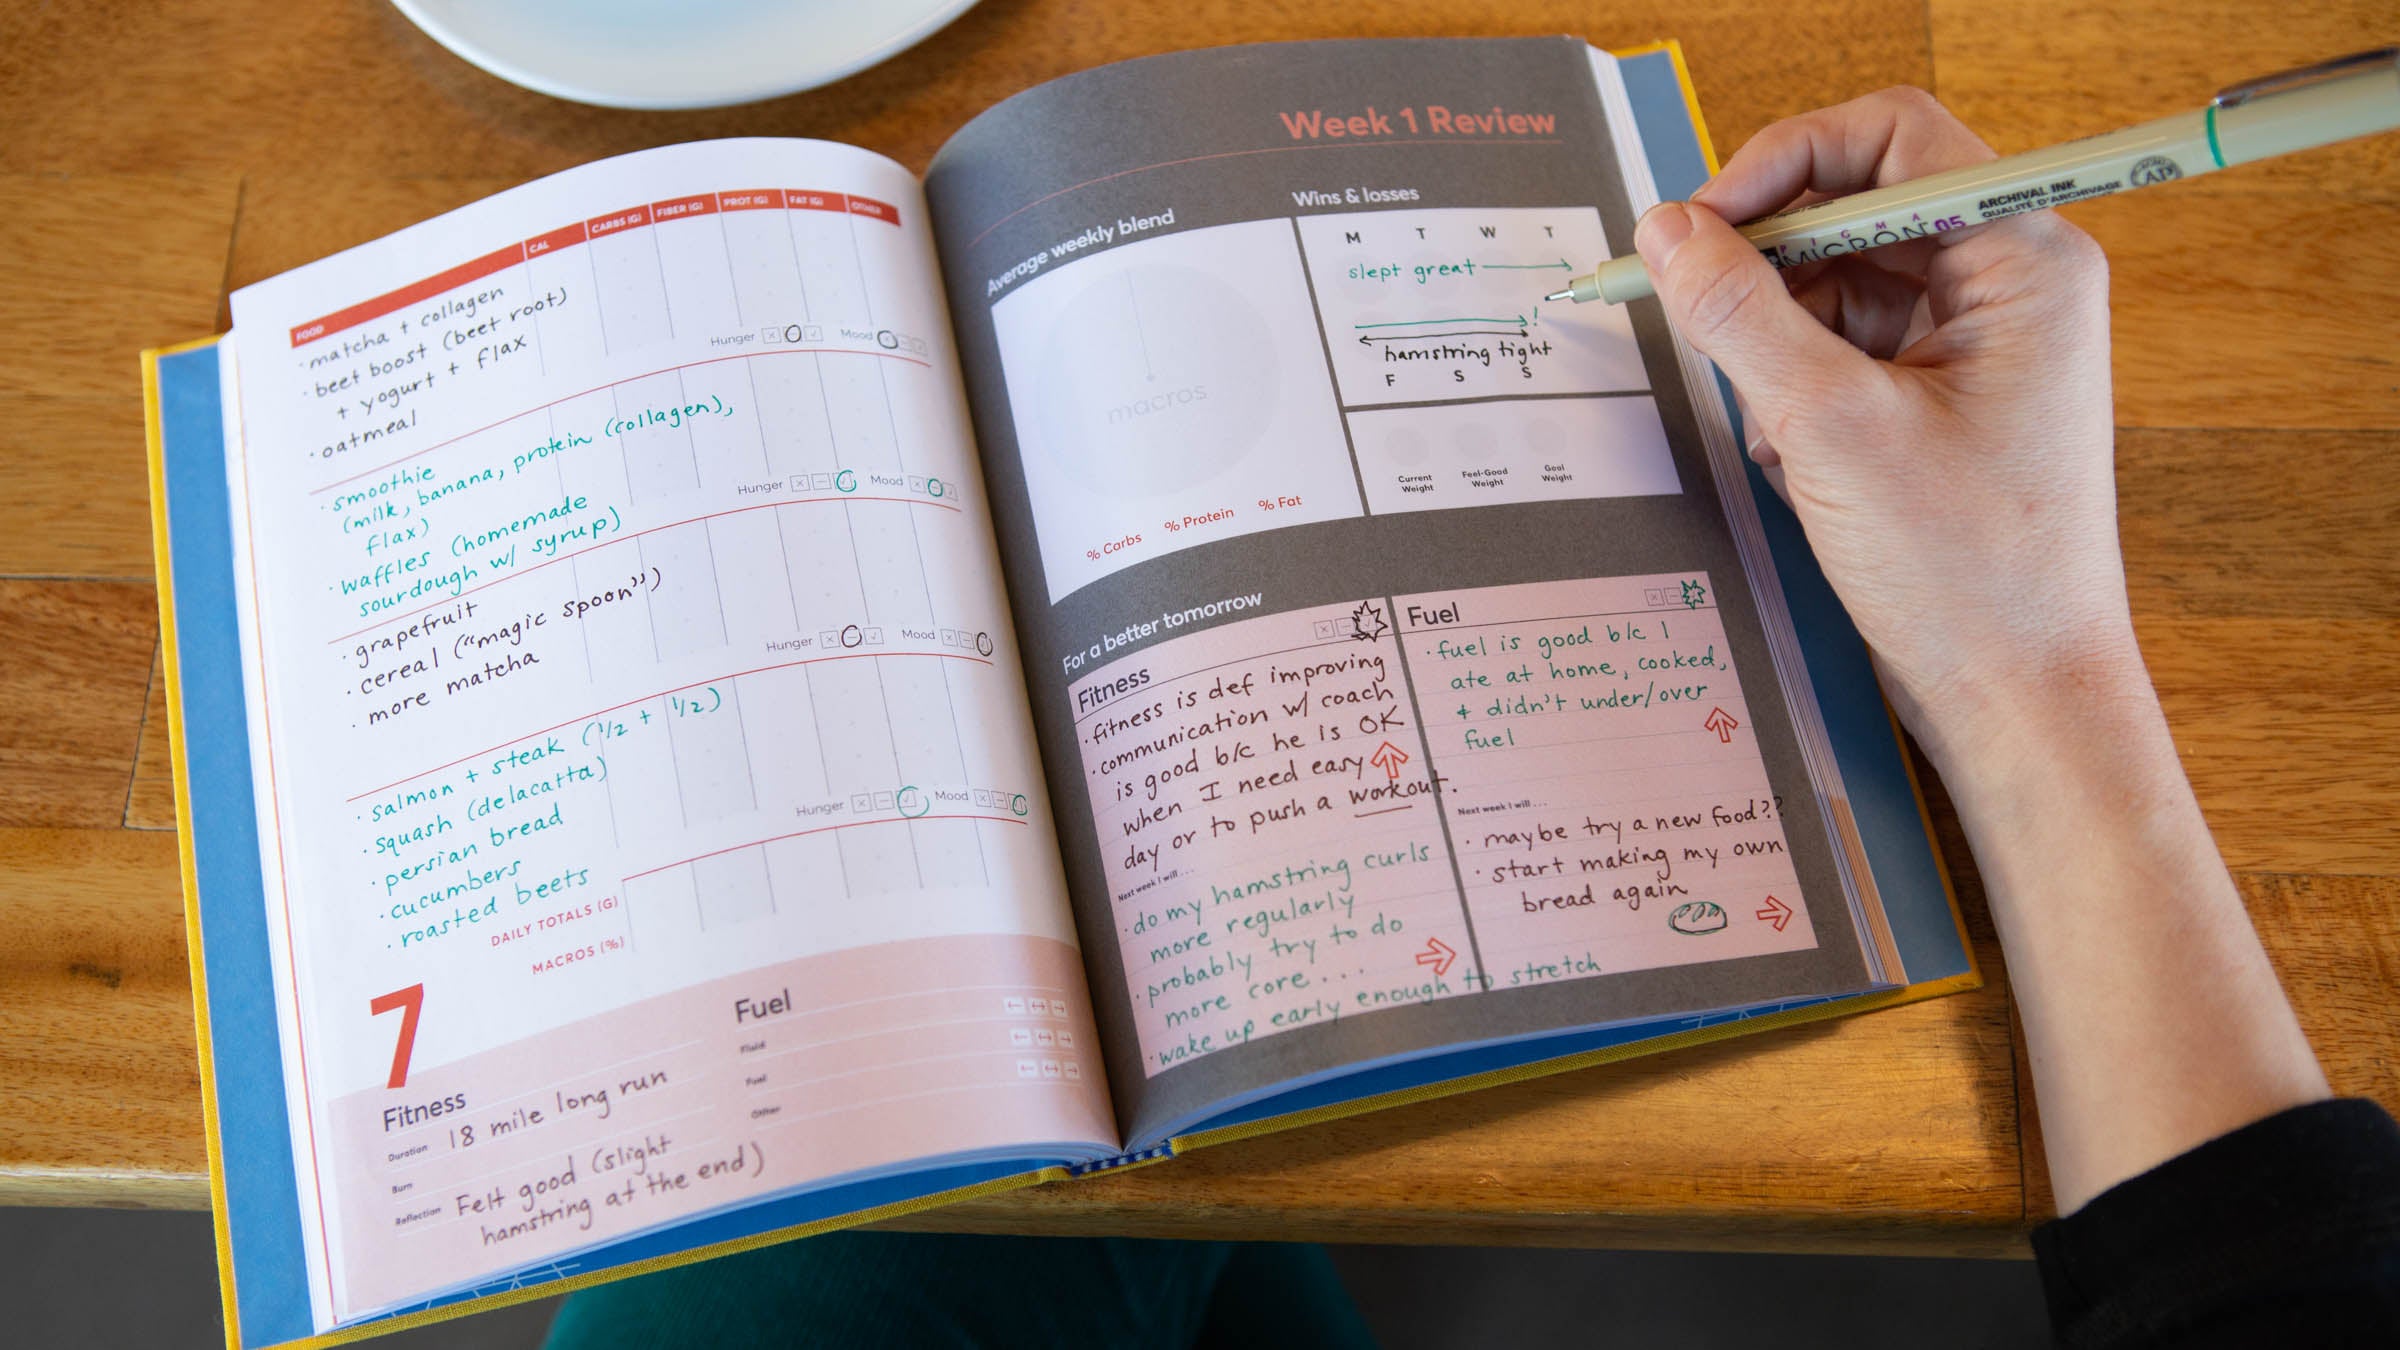 FOOD CAL CARBS (G) FIBER (G) PROT (G) FAT (G) OTHER
· matcha + collagen
· beet boost (beet root)
+ yogurt + flax
· oatmeal
Hunger Mood
· smoothie
(milk, banana, protein (collagen),
flax)
· waffles (homemade
sourdough w/ syrup)
Hunger Mood
· grapefruit
· cereal ("magic spoon")
· more matcha
Hunger Mood
· salmon + steak (1/2 + 1/2)
· squash (delacatta)
· persian bread
· cucumbers
· roasted beets
Hunger Mood
DAILY TOTALS (G)
MACROS (%)
7
Fitness
Duration 18 mile long run
Burn
Reflection Felt good (slight
hamstring at the end)
Fuel
Fluid
Fuel
Other
Week 1 Review
Average weekly blend
macros
% Carbs % Protein % Fat
Wins & losses
M T W T
slept great
!
hamstring tight
F S S
Current Weight
Feel-Good Weight
Goal Weight
For a better tomorrow
Fitness
· fitness is def improving
· communication w/ coach
is good b/c he is OK
when I need easy
day or to push a workout.
Next week I will . . .
· do my hamstring curls
more regularly
· probably try to do
more core . . .
· wake up early enough to stretch
Fuel
· fuel is good b/c I
ate at home, cooked,
+ didn't under/over
fuel
Next week I will . . .
· maybe try a new food??
· start making my own
bread again
PIGMA
MICRON 05
ARCHIVAL INK
QUALITÉ D'ARCHIVAGE
AP